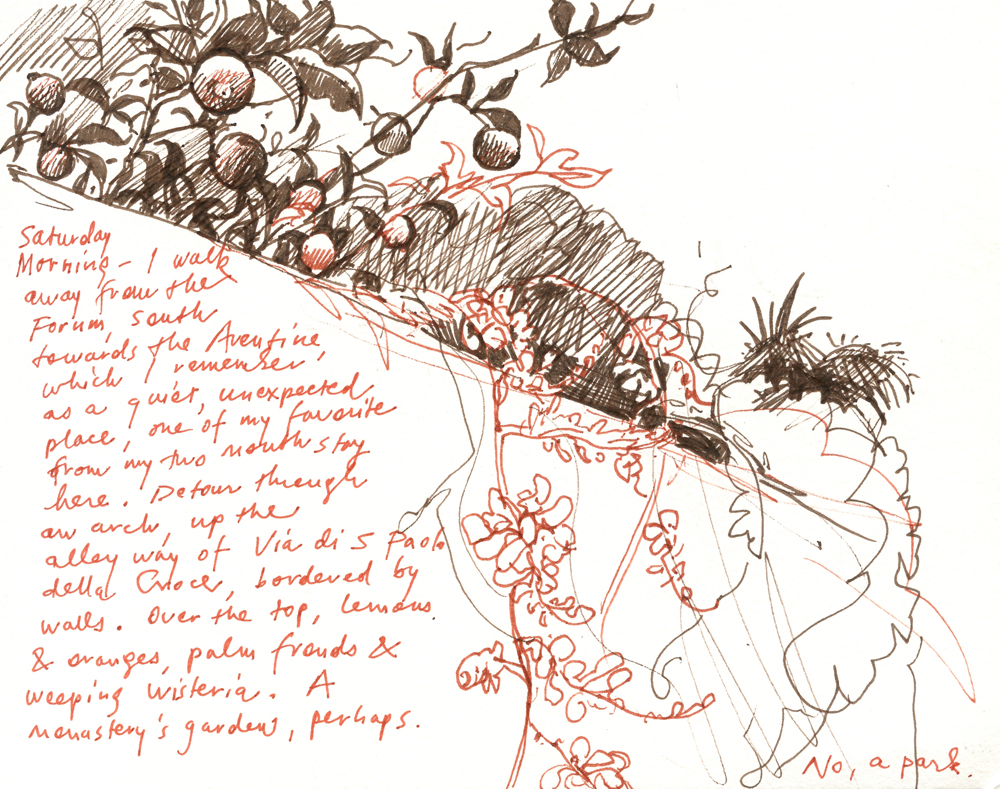 Saturday
Morning - I walk
away from the
Forum, south
towards the Aventine,
which I remember
as a quiet, unexpected
place, one of my favorite
from my two month stay
here. Detour through
an arch, up the
alley way of Via di S Paolo
della Croce, bordered by
walls. Over the top, lemons
& oranges, palm fronds &
weeping wisteria. A
monastery's garden, perhaps.
No, a park.